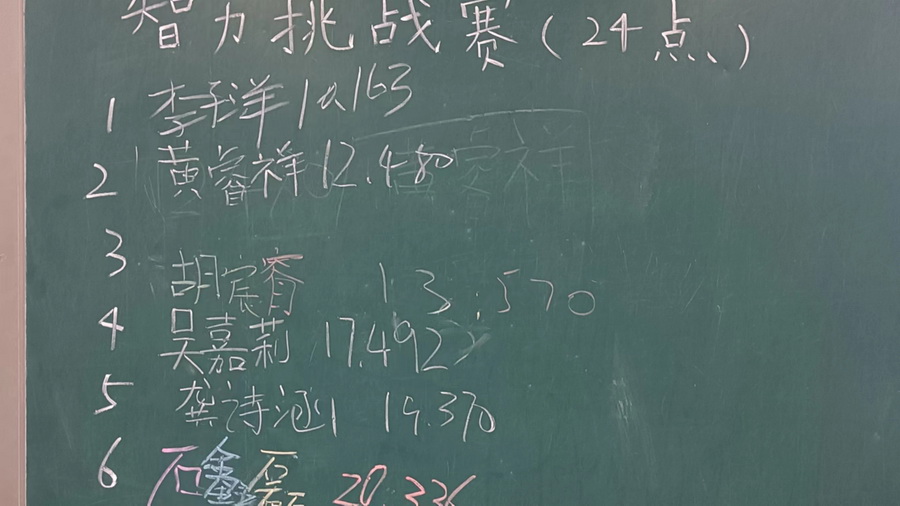 智力挑战赛(24点)
1 李子洋 10.163
2 黄睿祥 12.480
3 胡宸 13.570
4 吴嘉莉 17.492
5 龚诗涵 19.370
6 石鑫磊 20.336